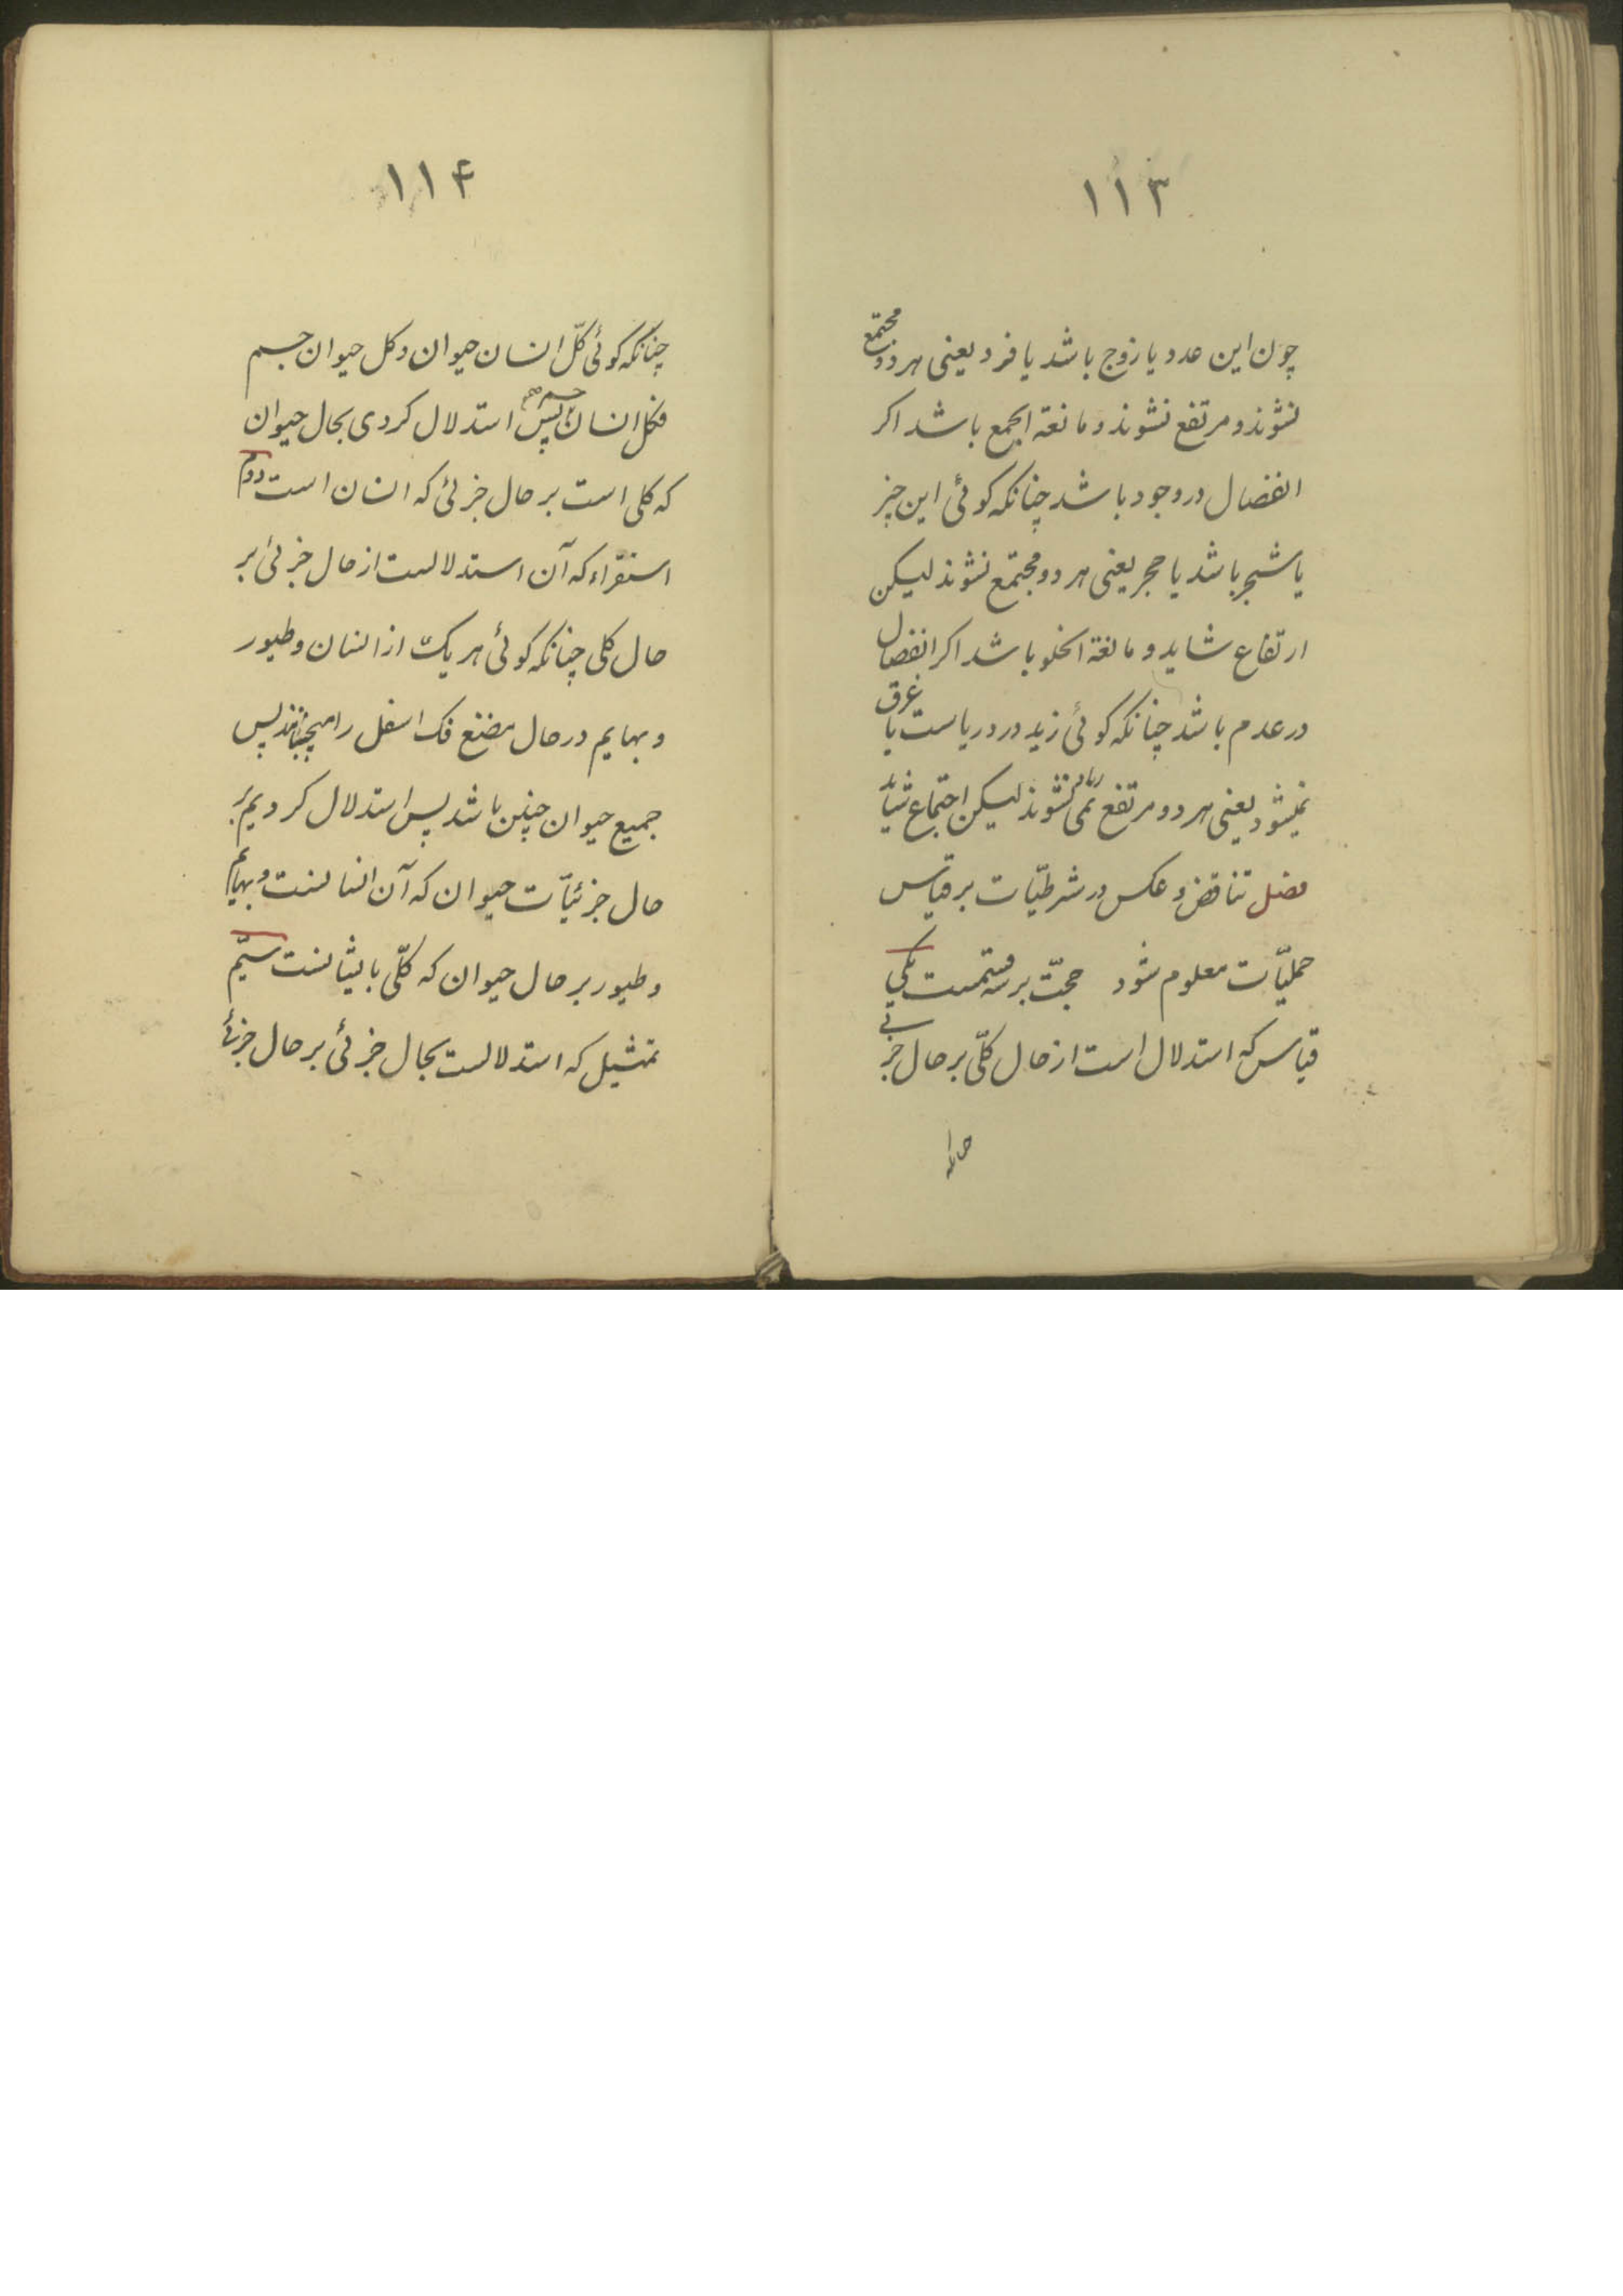 ۱۱۳
چون این عدد یا زوج باشد یا فرد یعنی هر دو مجتمع
نشوند و مرتفع نشوند و مانعة الجمع باشد اکر
انفصال در وجود باشد چنانکه کوئی این چیز
یا شجر باشد یا حجر یعنی هر دو مجتمع نشوند لیکن
ارتفاع شاید و مانعة الخلو باشد اکر انفصال
در عدم باشد چنانکه کوئی زید در دریاست یا غرق
نمیشود یعنی هر دو مرتفع نشوند لیکن اجتماع شاید
فصل تناقض و عکس در شرطیّات بر قیاس
حملیّات معلوم شود حجّت بر سه قسمست یکی
قیاس که استدلال است از حال کلّی بر حال جزئی
۱۱۴
چنانکه کوئی کلّ انسان حیوان و کل حیوان جسم
فکل انسان جسم پس استدلال کردی بحال حیوان
که کلی است بر حال جزئی که انسان است دوم
استقراء که آن استدلالست از حال جزئی بر
حال کلی چنانکه کوئی هر یک از انسان و طیور
و بهایم در حال مضغ فک اسفل را میجنبانند پس
جمیع حیوان چنین باشد پس استدلال کردیم بر
حال جزئیّات حیوان که آن انسانست و بهایم
و طیور بر حال حیوان که کلّی بایشانست سیّم
تمثیل که استدلالست بحال جزئی بر حال جزئی